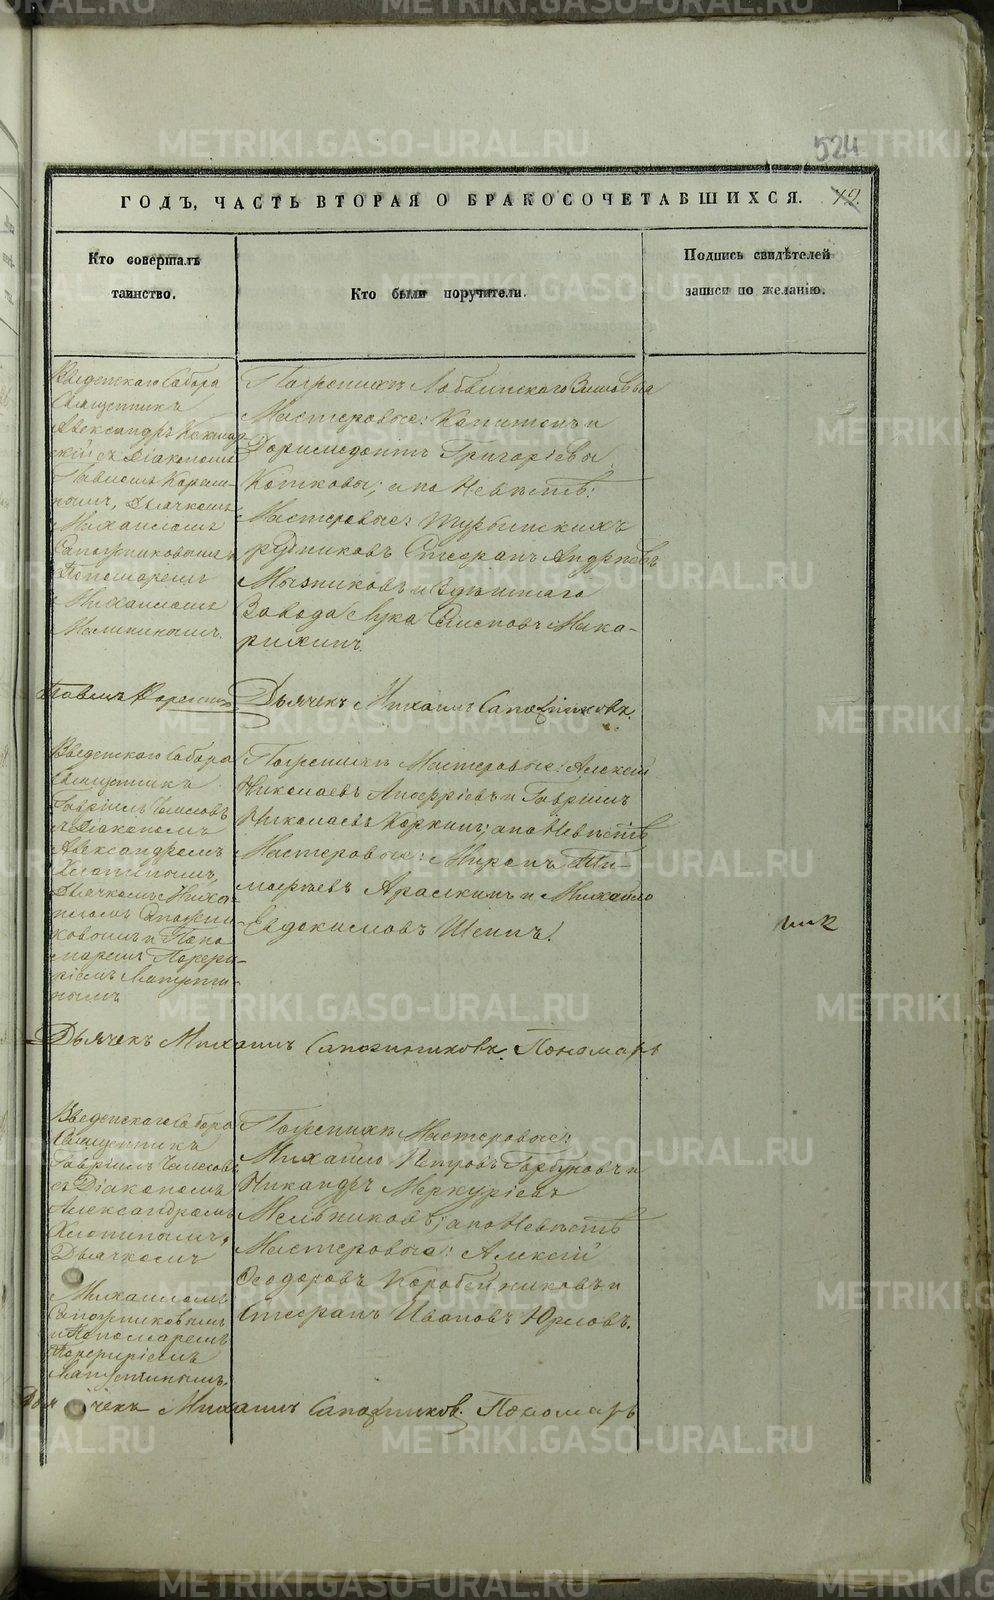 524
ГОДЪ, ЧАСТЬ ВТОРАЯ О БРАКОСОЧЕТАВШИХСЯ.
Кто совершалъ
таинство.
Кто были поручители.
Подпись свидѣтелей
записи по желанію.
Введенскаго Собора
Священникъ
Александръ
скій съ Діакономъ
Павломъ
Дьячкомъ
Михаиломъ
Сапожниковымъ
Пономаремъ
Михаиломъ
По женихѣ
Мастеровые: Капитонъ и
Доримедонтъ Григорьевы
Котковы; а по Невѣстѣ:
Мастеровые: Турьинскихъ
рудниковъ Стефанъ Андреевъ
Мызниковъ и
Завода Лука Осиповъ Мака-
рихинъ.
Дьячекъ Михаилъ Сапожниковъ
Введенскаго Собора
Священникъ
Гавріилъ
съ Діакономъ
Александромъ
Хлопинымъ,
Дьячкомъ Миха-
иломъ Сапожни-
ковымъ и Поно
маремъ Порфи-
ріемъ
По женихѣ Мастеровые: Алексѣй
Николаевъ и Гавріилъ
Николаевъ Коркинъ; а по Невѣстѣ
Мастеровые: Миронъ Ти-
мофѣевъ и Михайло
Евдокимовъ Шеинъ.
Дьячекъ Михаилъ Сапожниковъ. Пономарь
Введенскаго Собора
Священникъ
Гавріилъ
съ Діакономъ
Александромъ
Хлопинымъ,
Дьячкомъ
Михаиломъ
Сапожниковымъ
и Пономаремъ
Порфиріемъ
По женихѣ Мастеровые:
Михайло Петровъ Горбуновъ и
Никандръ Меркурьевъ
Мельниковъ; а по Невѣстѣ
Мастеровые: Алексѣй
Феодоровъ Коробейниковъ и
Стефанъ Ивановъ Юрловъ.
Дьячекъ Михаилъ Сапожниковъ. Пономарь
METRIKI.GASO-URAL.RU